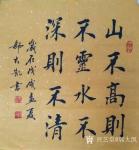 山不高則
不靈水不
深則不清
歲在戊戌孟夏
郭大凱書